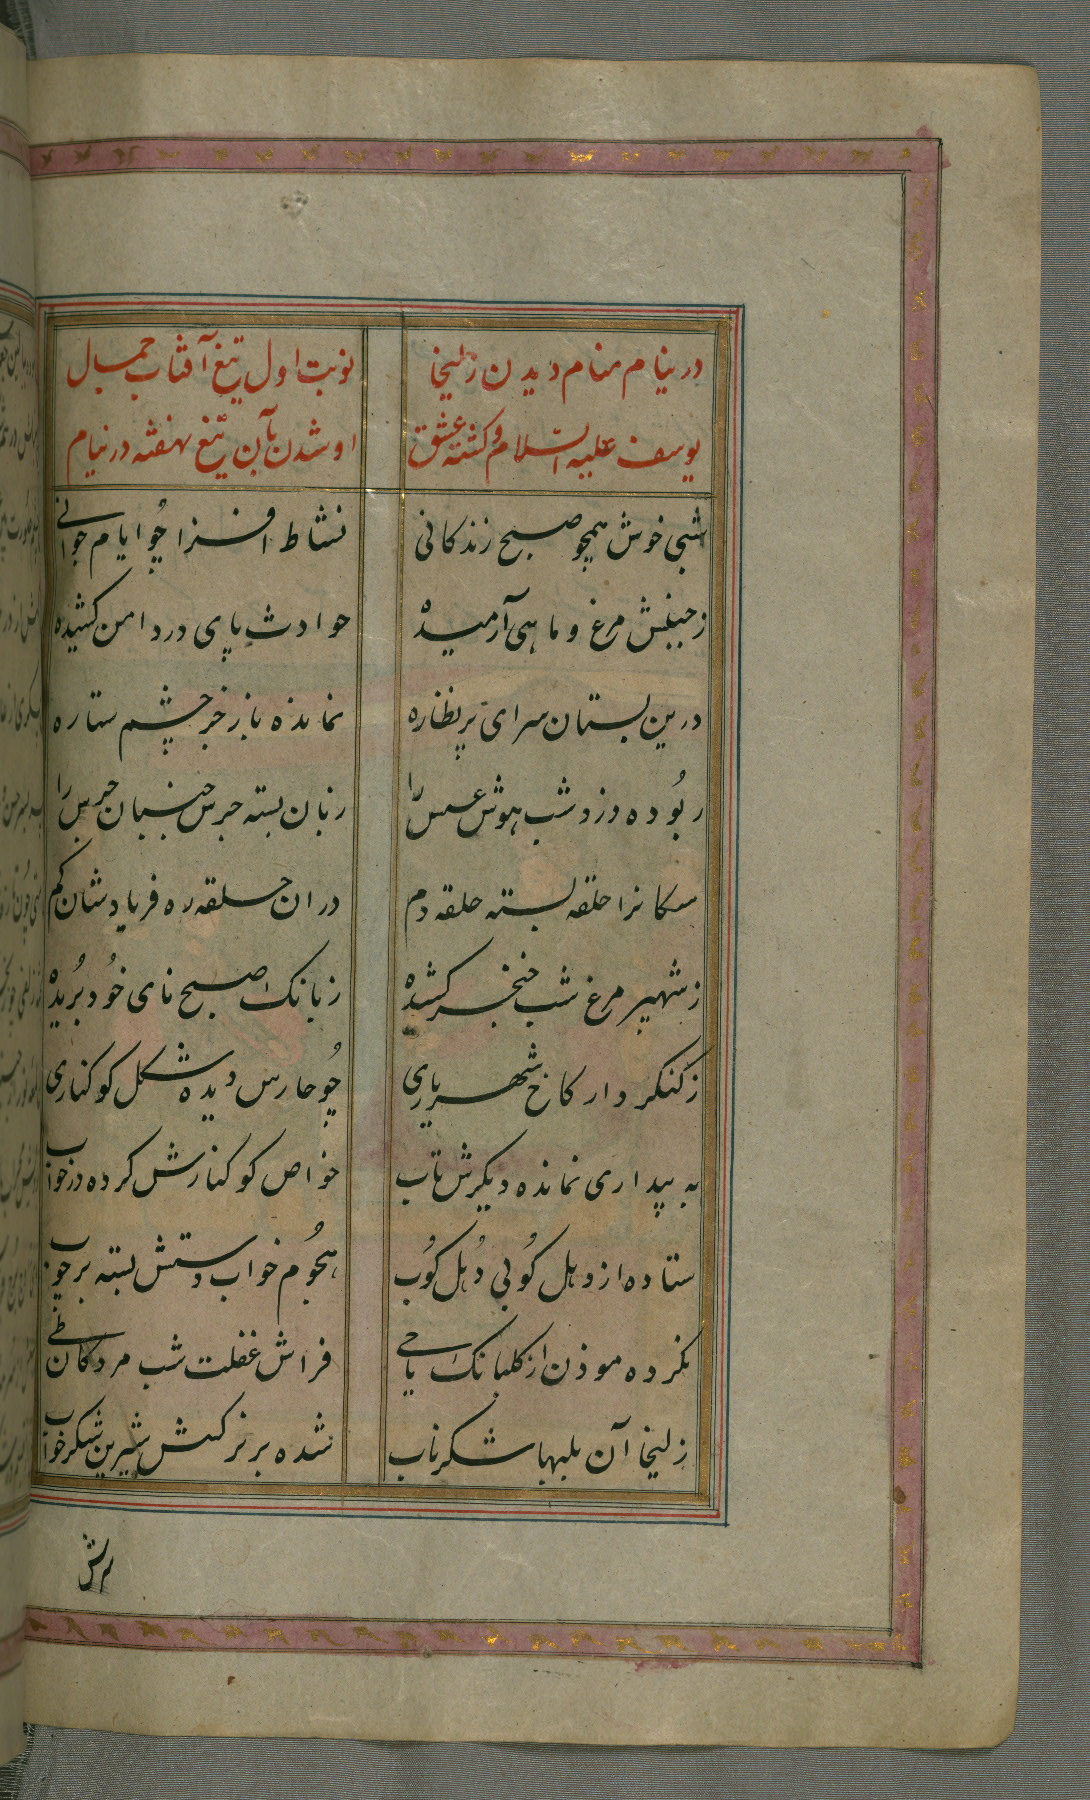 در نیام منام دیدن زلیخا نوبت اول تیغ آفتاب جمال
یوسف علیه السلام و کشته عشق او شدن بآن تیغ نهفته در نیام
شبی خوش همچو صبح زندکانی نشاط افزا چو ایام جوانی
ز جنبش مرغ و ماهی آرمیده حوادث پای در دامن کشیده
درین بستان سرای پر نظاره نمانده باز خر چشم ستاره
ربوده دزد شب هوش عسس را زبان بسته جرس جنبان جرس را
سکانرا حلقه بسته حلقه دم دران حلقه ره فریادشان کم
ز شهپر مرغ شب خنجر کشیده ز بانک صبح نای خود بریده
ز کنکر دار کاخ شهریاری چو حارس دیده شکل کوکناری
به بیداری نمانده دیکرش تاب خواص کوکنارش کرده در خواب
ستاده از دهل کوبی دهل کوب هجوم خواب دستش بسته بر چوب
نکرده موذن از کلبانک یا حی فراش غفلت شب مردکان طی
زلیخا آن بلبها شکر ناب شده بر نرکسش شیرین شکر خواب
سرش